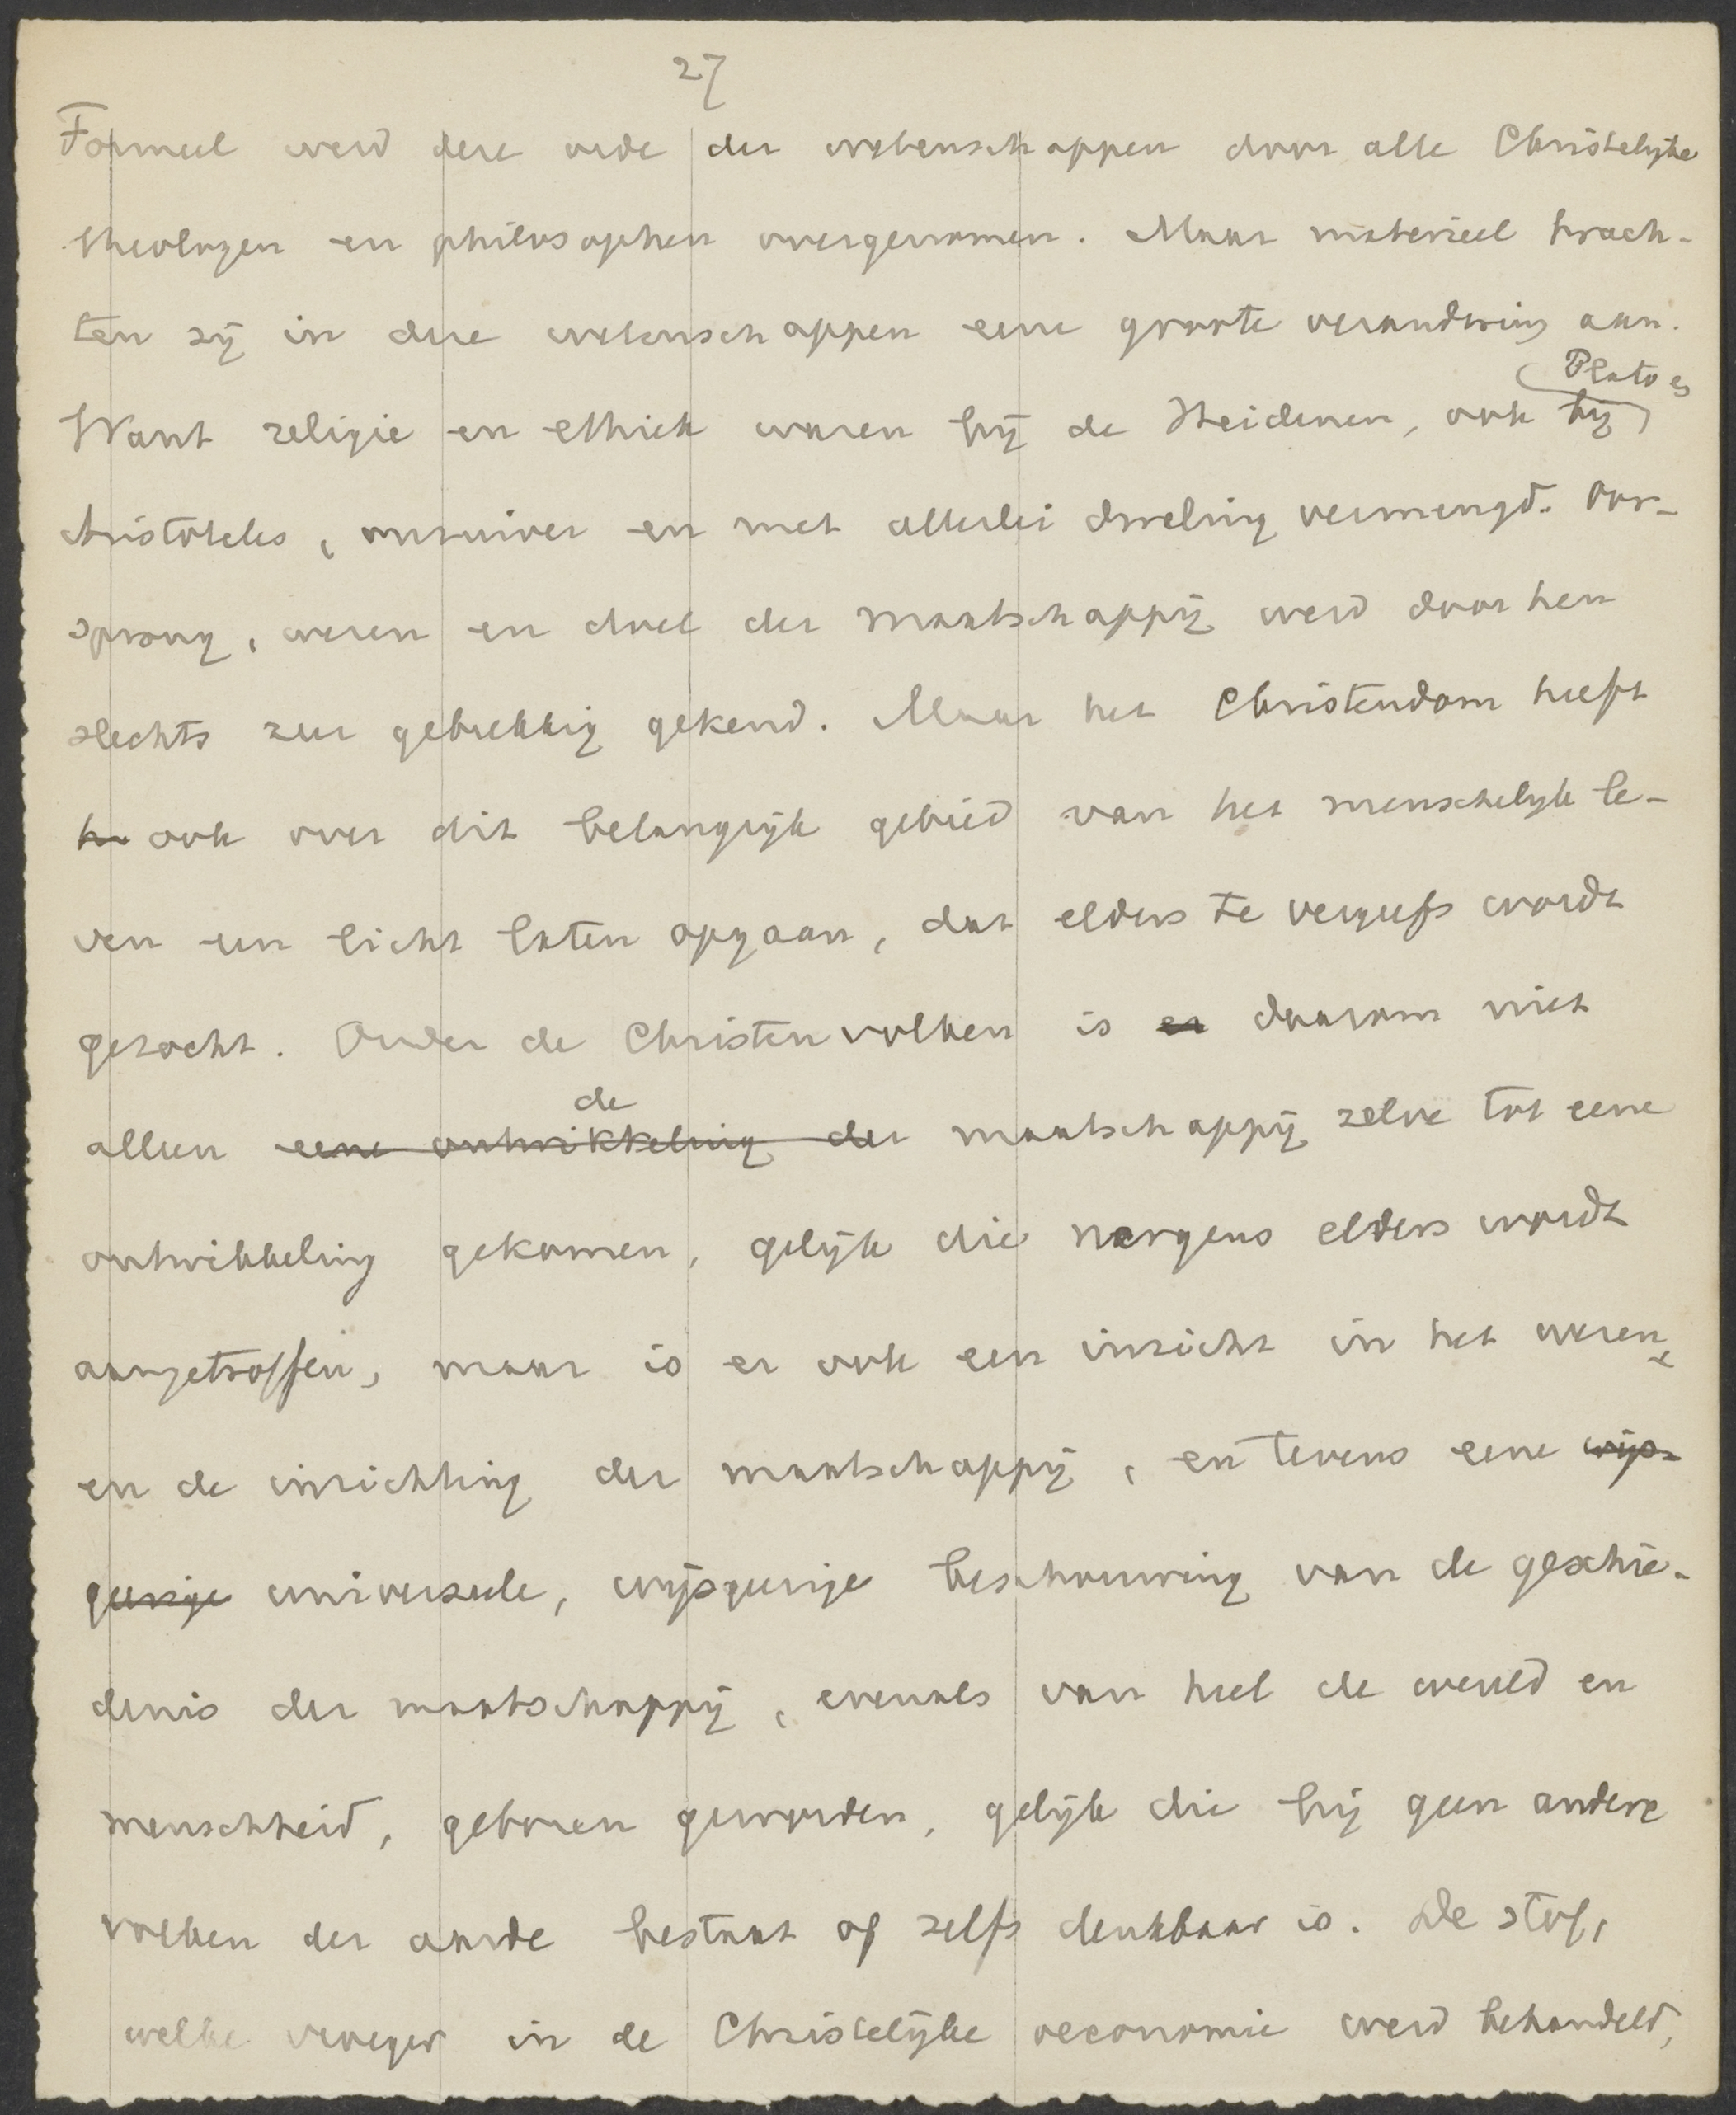 27
Formeel werd deze orde der wetenschappen door alle Christelijke
theologen en philosophen overgenomen. Maar materieel brach-
ten zij in deze wetenschappen eene groote verandering aan.
Plato en
Want religie en ethiek waren bij de Heidenen, ook bij
Aristoteles, onzuiver en met allerlei dwaling vermengd. Oor-
sprong, wezen en doel der maatschappij werd door hen
slechts zeer gebrekkig gekend. Maar het Christendom heeft
h ook over dit belangrijk gebied van het menschelijk le-
ven een licht laten opgaan, dat elders te vergeefs wordt
gezocht. Onder de Christenvolken is er daarom niet
de
alleen eene ontwikkeling der maatschappij zelve tot eene
ontwikkeling gekomen, gelijk die nergens elders wordt
aangetroffen, maar is er ook een inzicht in het wezen
en de inrichting der maatschappij, en tevens eene wijs-
geerige universeele, wijsgeerige beschouwing van de geschie-
denis der maatschappij, evenals van heel de wereld en
menschheid, geboren geworden, gelijk die bij geen andere
volken der aarde bestaat of zelfs denkbaar is. De stof,
welke vroeger in de Christelijke oeconomie werd behandeld,